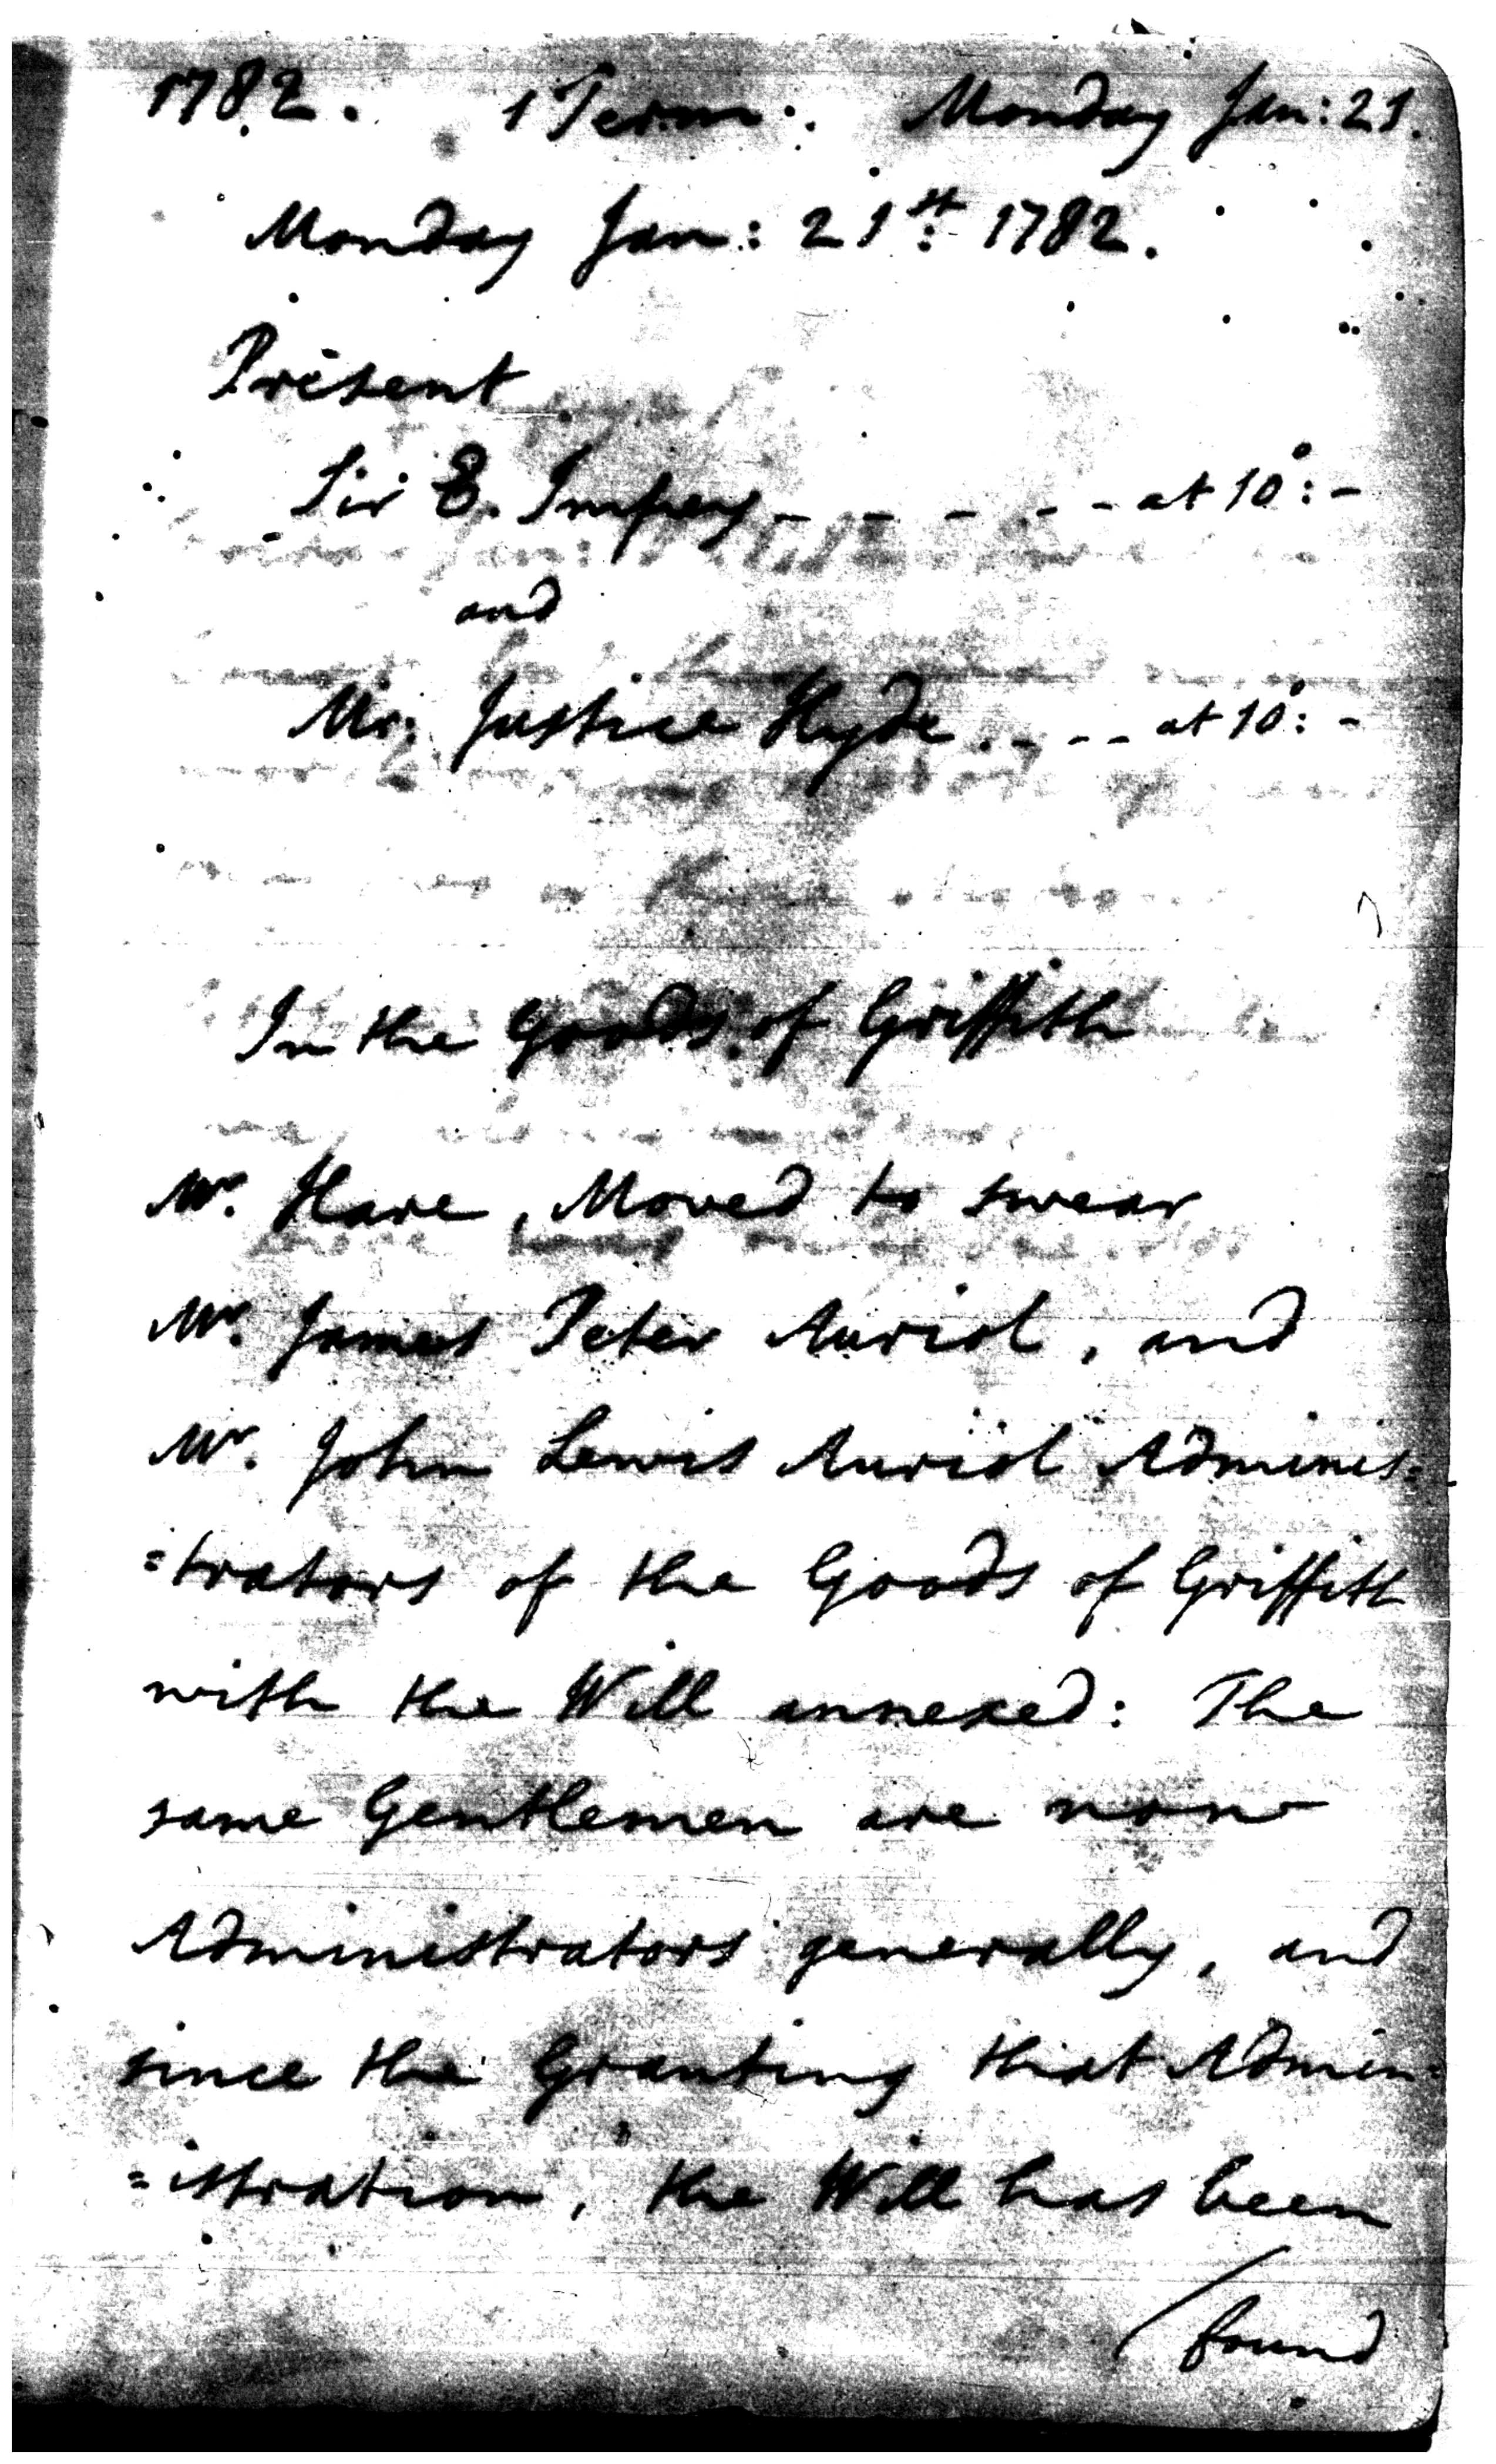 1782. 1 Term. Monday Jan: 21.
Monday Jan: 21st: 1782.
Present
Sir E. Impey - - - - - at 10: -
and
Mr. Justice Hyde. - - - at 10: -
In the Goods of Griffith
Mr. Hare, Moved to swear
Mr. James Peter Auriol, and
Mr. John Lewis Auriol Adminis=
=trators of the Goods of Griffith
with the Will annexed: The
same Gentlemen are now
Administrators generally, and
since the Granting that Admin=
=istration, the Will has been
/found